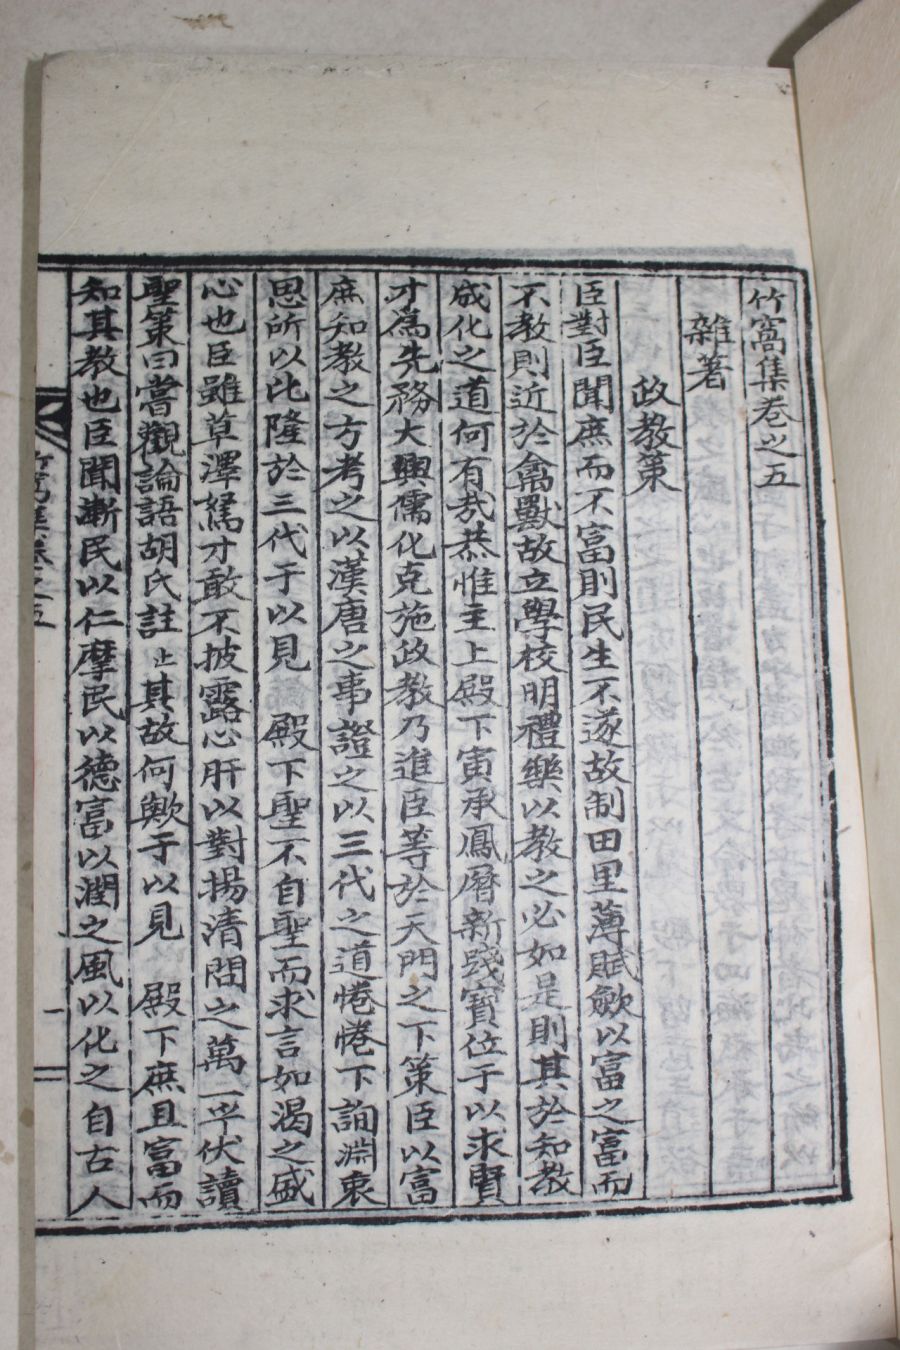 竹窩集卷之五
雜著
政教策
臣對臣聞庶而不富則民生不遂故制田里薄賦歛以富之富而
不教則近於禽獸故立學校明禮樂以教之必如是則其於知教
成化之道何有㢤恭惟主上殿下寅承鳳曆新踐寶位于以求賢
才爲先務大興儒化克施政教乃進臣等於天門之下策臣以富
庶知教之方考之以漢唐之事證之以三代之道惓惓下詢淵衷
思所以比隆於三代于以見 殿下聖不自聖而求言如渴之盛
心也臣雖草澤駑才敢不披露心肝以對揚清問之萬一乎伏讀
聖策曰嘗觀論語胡氏註止其故何歟于以見 殿下庶且富而
知其教也臣聞漸民以仁摩民以德富以潤之風以化之自古人
竹窩集卷之五
一